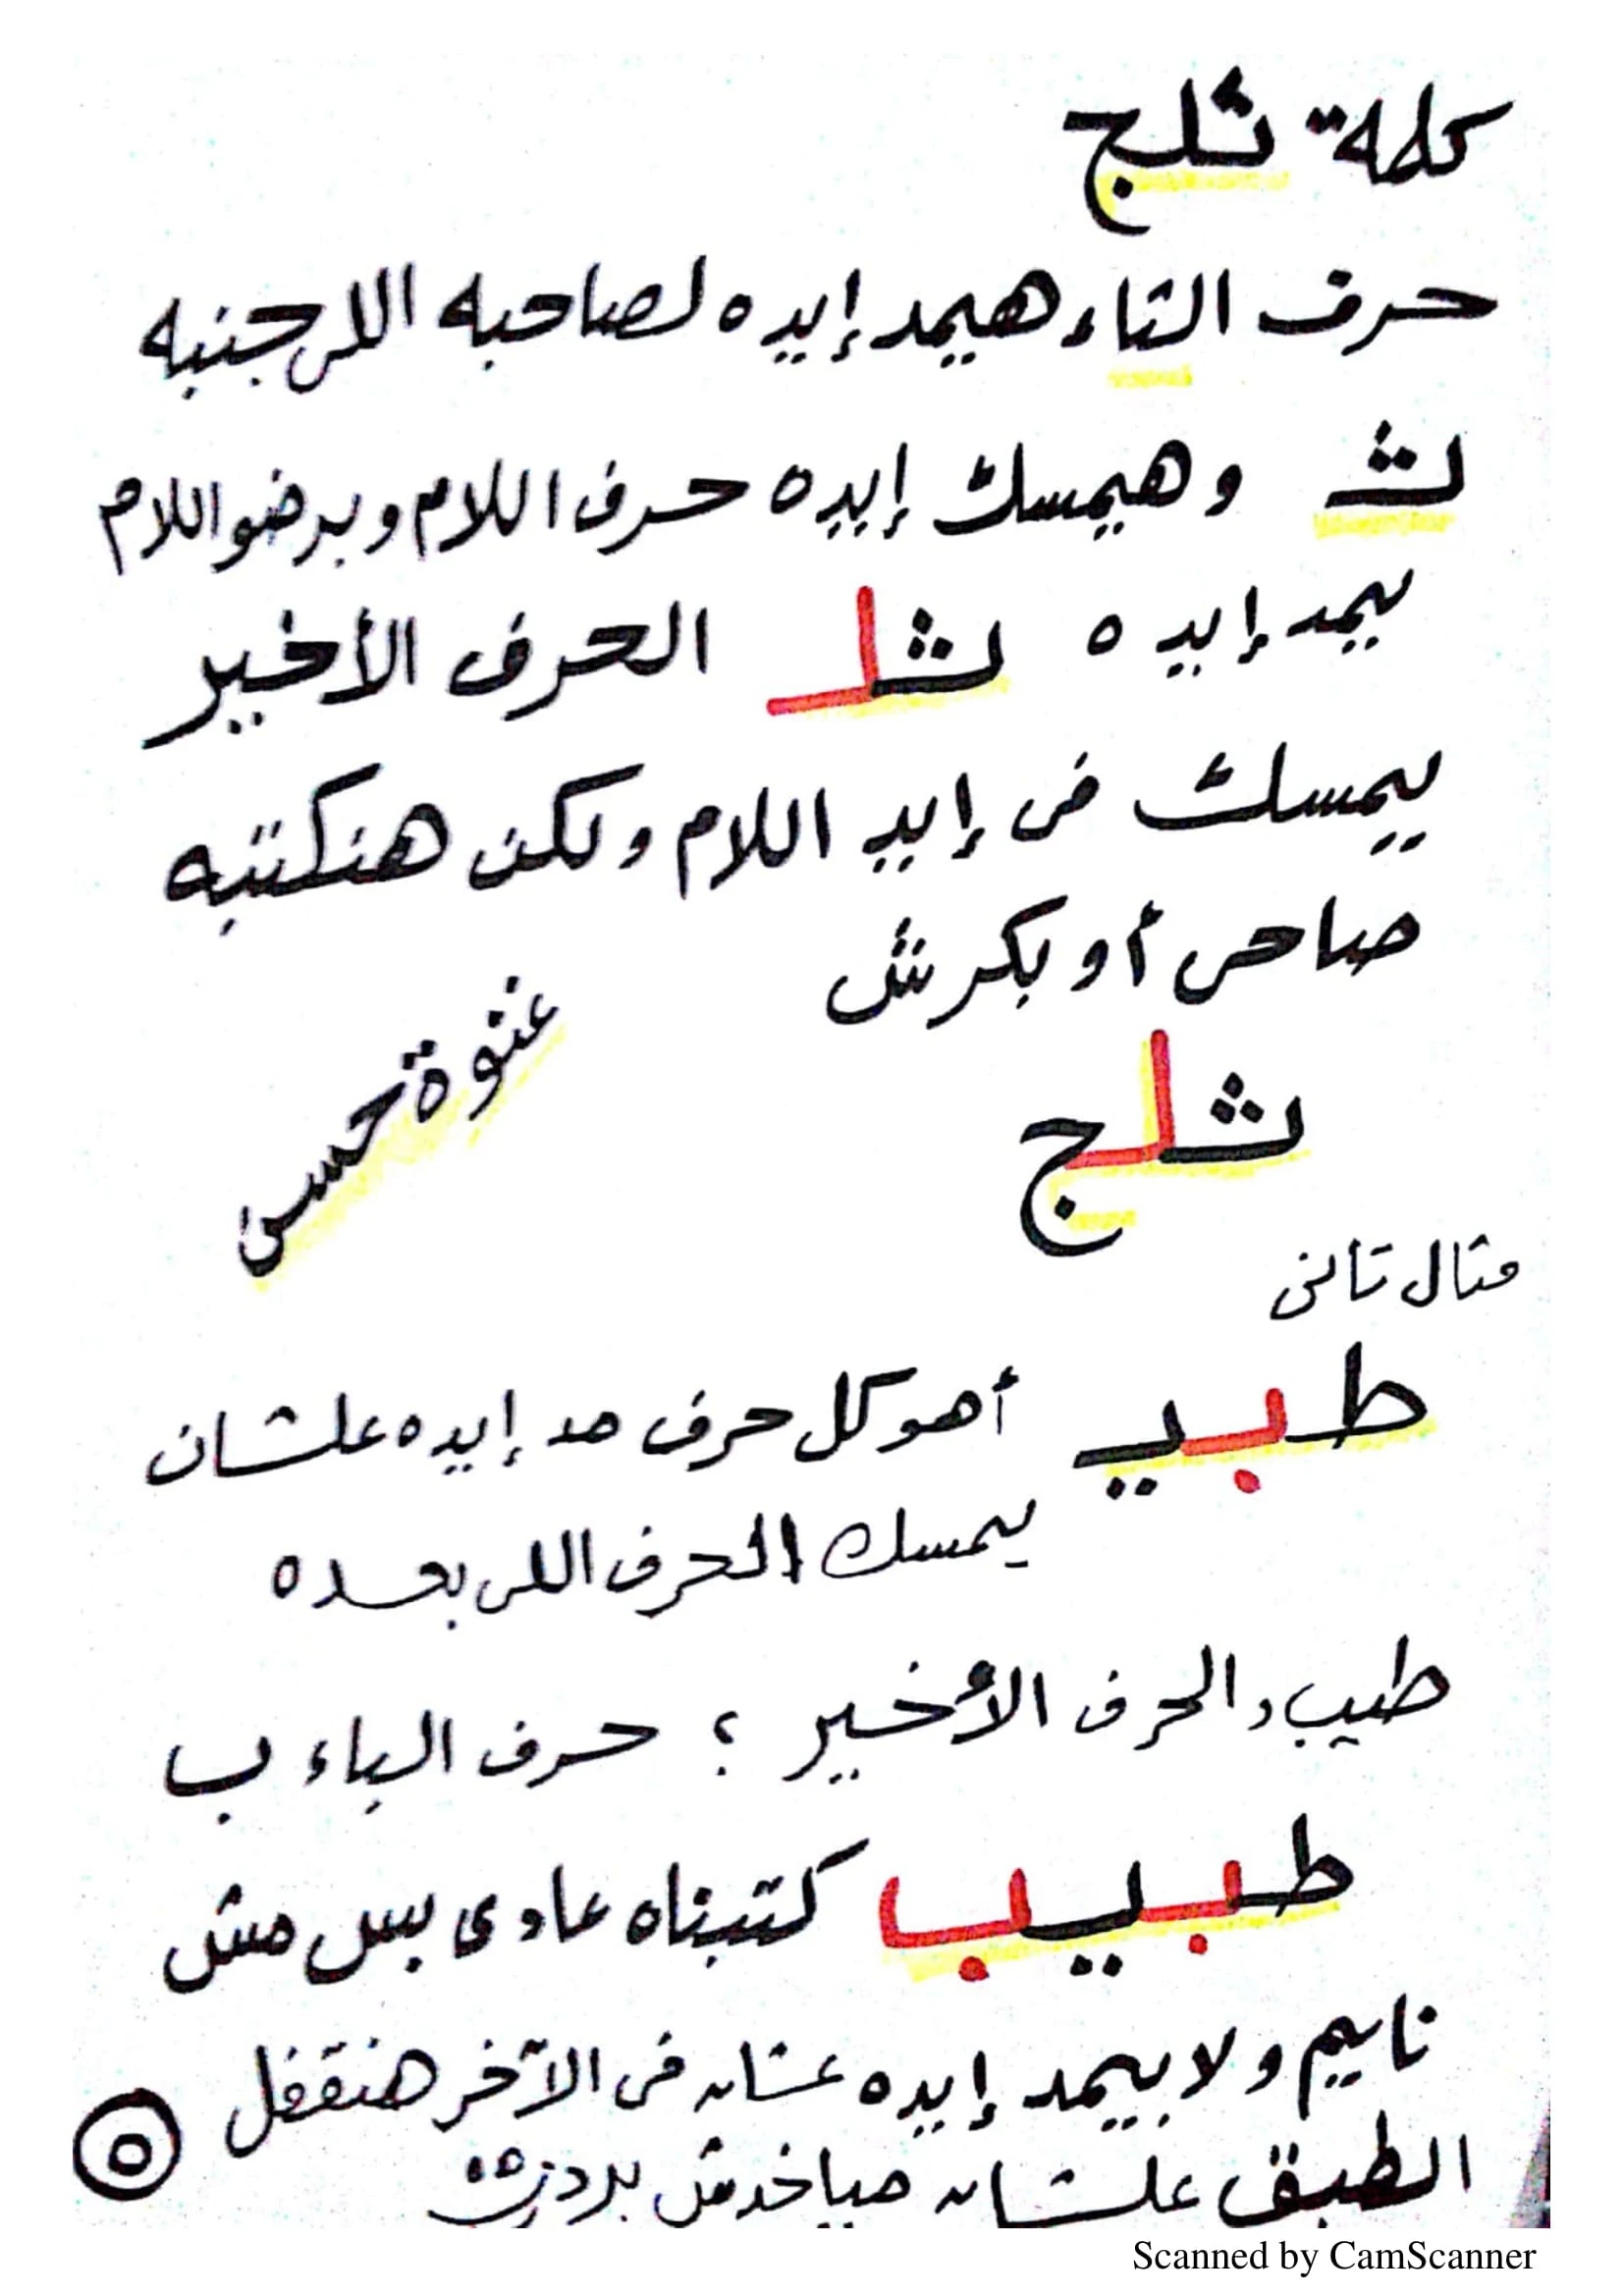 كلمة ثلج
حرف الثاء هيمد إيده لصاحبه اللى جنبه
ثـ وهيمسك إيده حرف اللام وبرضو اللام
يمد إيده ثلـ الحرف الأخير
يمسك فى إيد اللام ولكن هنكتبه
صاحى أو بكرش
غنوة حسن
ثلج
مثال تانى
طبيـ أهو كل حرف مد إيده علشان
يمسك الحرف اللى بعده
طيب والحرف الأخير ؟ حرف الباء ب
طبيب كتبناه عادى بس مش
نايم ولا بيمد إيده عشان فى الآخر هنقفل
الطبق علشان مياخدش برد
٥
Scanned by CamScanner